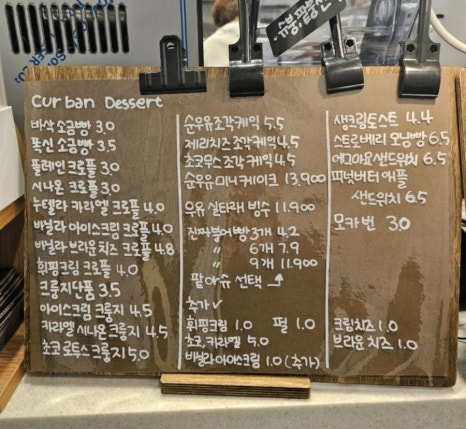 Curban Dessert
바삭 소금빵 3.0
폭신 소금빵 3.5
플레인 크로플 3.0
시나몬 크로플 3.0
누텔라 카라멜 크로플 4.0
바닐라 아이스크림 크로플 4.0
바닐라 브라운치즈 크로플 4.8
휘핑크림 크로플 4.0
크룽지단품 3.5
아이스크림 크룽지 4.5
카라멜 시나몬 크룽지 4.5
초코 로투스 크룽지 5.0
순우유조각케익 5.5
제리치즈 조각케익 4.5
초코무스 조각 케익 4.5
순우유 미니케이크 13,900
우유 실타래 빙수 11,900
진짜붕어빵 3개 4.2
〃 6개 7.9
〃 9개 11,900
팥 아슈 선택
추가 ✓
휘핑크림 1.0 펄 1.0
초코, 카라멜 5.0
바닐라아이스크림 1.0 (추가)
생크림토스트 4.4
스트로베리 모닝빵 6.5
에그마요샌드위치 6.5
피넛버터 애플
샌드위치 6.5
모카번 3.0
크림치즈 1.0
브라운 치즈 1.0